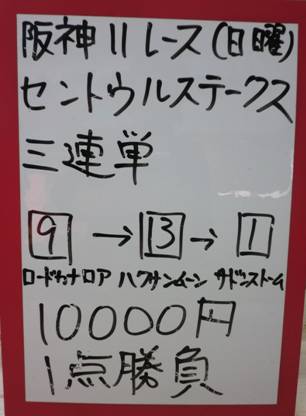 阪神11レース(日曜)
セントウルステークス
三連単
9→13→1
ロードカナロア ハクサンムーン サドンストーム
10000円
1点勝負